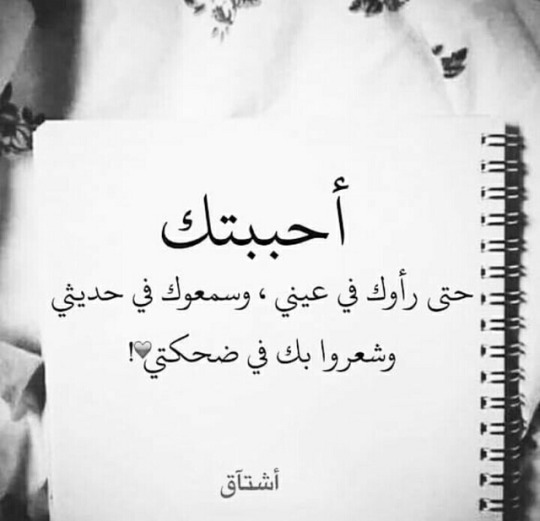 أحببتك
حتى رأوك في عيني ، وسمعوك في حديثي
وشعروا بك في ضحكتي🤍!
أشتآق